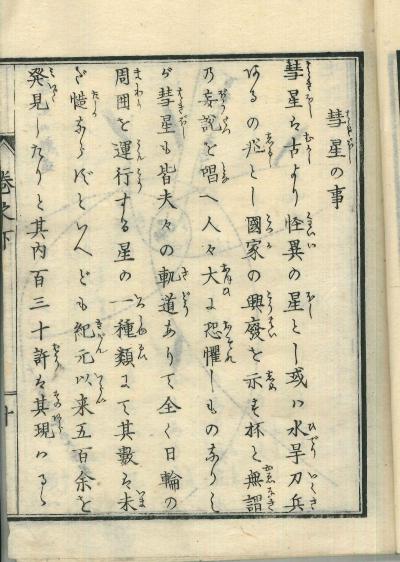 彗星の事
彗星は古より怪異の星とし或ハ水旱刀兵
あるの兆とし國家の興廢を示す杯と無謂
乃妄説を唱へ人々大に恐懼しものなりし
が彗星も皆夫々の軌道ありて全く日輪の
周囲を運行する星の一種類にて其數は未
だ慥ならずといへども紀元以来五百余を
発見したりと其内百三十許は其現ハるゝ
巻之下
十